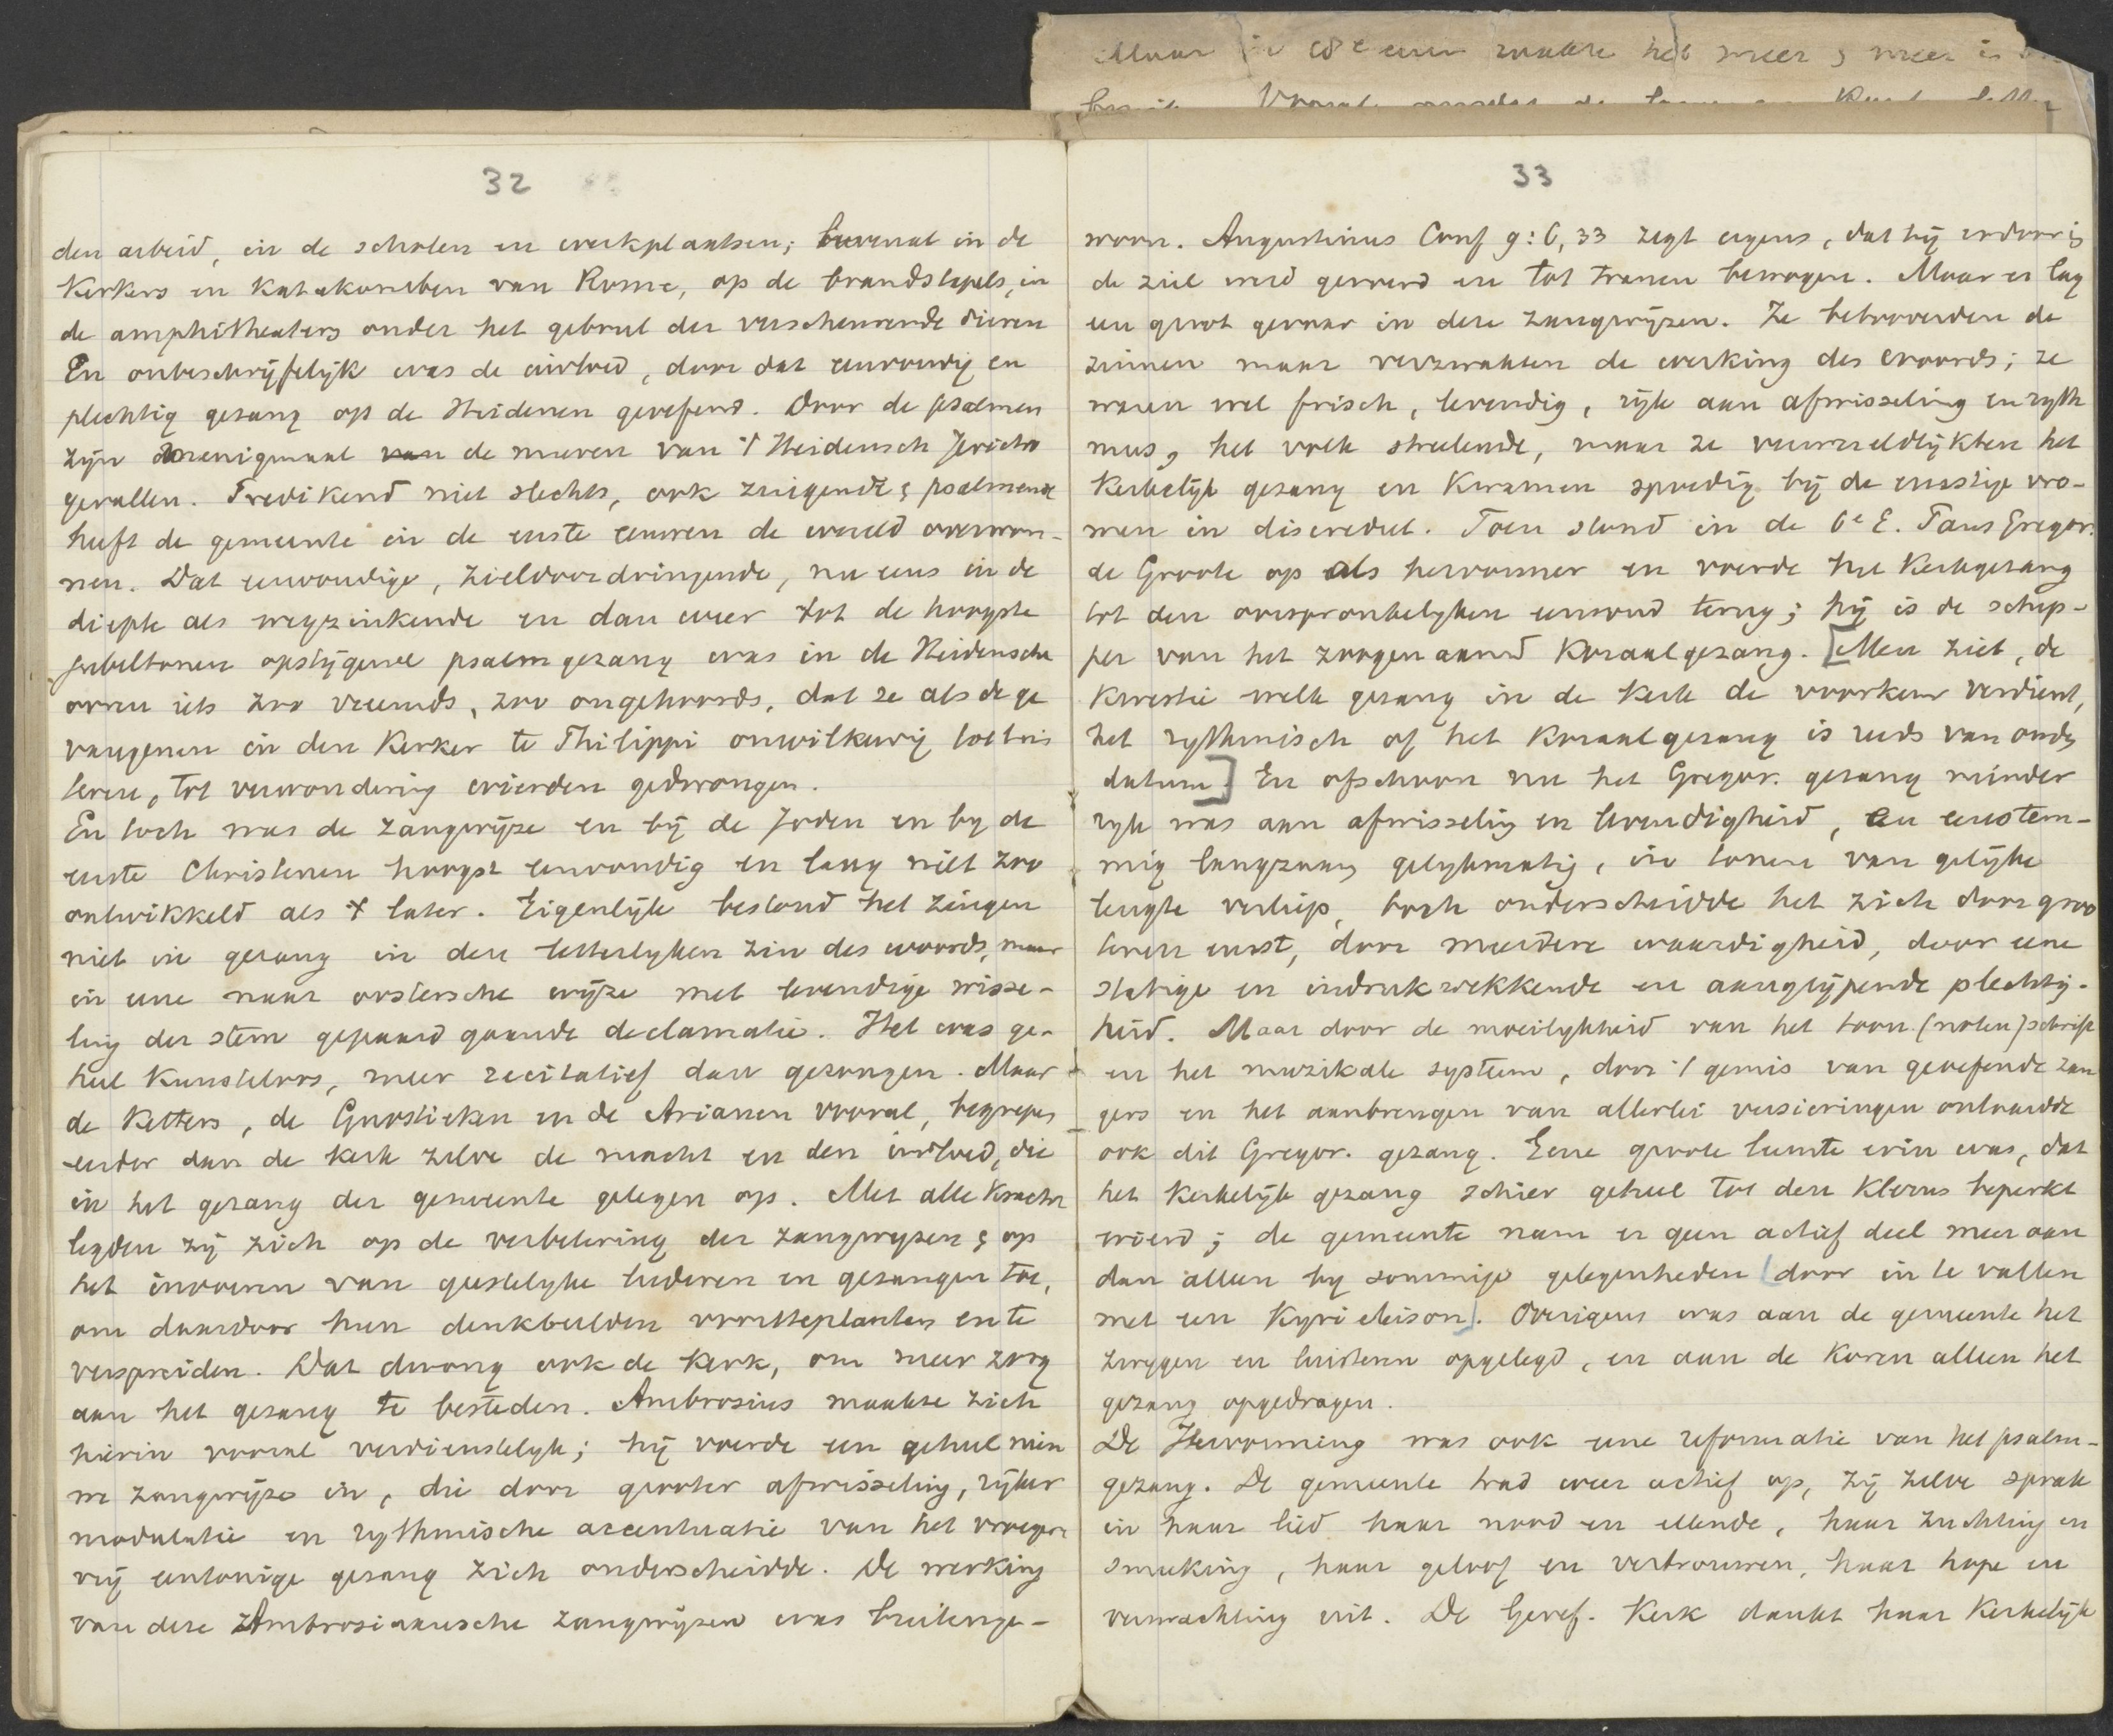 Maar in de 18e eeuw raakte het meer & meer in
32
den arbeid, in de scholen en werkplaatsen; bovenal in de
Kerkers en Katakomben van Rome, op de brandstapels, in
de amphitheaters onder het gebrul der verscheurende dieren
En onbeschrijfelijk was de invloed, door dat eenvoudig en
plechtig gezang op de Heidenen geoefend. Door de psalmen
zijn menigmaal de muren van 't Heidensch Jericho
gevallen. Predikend niet slechts, ook zingende & psalmend
heeft de gemeente in de eerste eeuwen de wereld overwon-
nen. Dat eenvoudige, zieldoordringende, nu eens in de
diepte als wegzinkende en dan weer tot de hoogste
jubeltonen opstijgende psalmgezang was in de Heidensche
ooren iets zoo vreemds, zoo ongehoords, dat ze als de ge
vangenen in den Kerker te Philippi onwilkeurig
tot verwondering wierden gedwongen.
En toch was de zangwijze en bij de Joden en by de
eerste Christenen hoogst eenvoudig en lang niet zoo
ontwikkeld als later. Eigenlijk bestond het zingen
niet in gezang in den letterlyken zin des woords, maar
in eene naar oostersche wijze met levendige wisse-
ling der stem gepaard gaande declamatie. Het was ge-
heel Kunsteloos, meer recitatief dan gezongen. Maar
de Ketters, de Gnostieken en de Arianen vooral, begrepen
eerder dan de Kerk zelve de macht en den invloed, die
in het gezang der gemeente gelegen op. Met alle Kracht
legden zij zich op de verbetering der zangwyzen & op
het invoeren van geestelyke liederen en gezangen toe,
om daardoor hun denkbeelden voortteplanten en te
verspreiden. Dat dwong ook de Kerk, om meer zorg
aan het gezang te besteden. Ambrosius maakte zich
hierin vooral verdienstelyk; hij voerde een geheel nieu
we zangwijze in, die door grooter afwisseling, rijker
modulatie en rythmische accentuatie van het vroegere
vrij eentonige gezang zich onderscheidde. De werking
van deze Ambrosiaansche zangwijzen was buitenge-
33
woon. Augustinus Conf 9:6, 33 zegt ergens, dat hij erdoor in
de ziel werd geroerd en tot tranen bewogen. Maar er lag
een groot gevaar in deze zangwijzen. Ze betooverden de
zinnen maar verzwakten de werking des woords; ze
waren wel frisch, levendig, rijk aan afwisseling en ryth
mus, het volk streelende, maar ze verwereldlijkten het
Kerkelijk gezang en Kwamen spoedig bij de ernstige vro-
men in discrediet. Toen stond in de 6e E. Paus Gregor.
de Groote op als hervormer en voerde het Kerkgezang
tot den oorspronkelyken eenvoud terug; hij is de schep-
per van het zoogenaamd Koraalgezang. [Men ziet, de
Kwestie welk gezang in de Kerk de voorkeur verdient,
het rythmisch of het Koraalgezang is reeds van oude
datum] En ofschoon nu het Gregor. gezang minder
ryk was aan afwisseling en levendigheid, en eenstem-
mig langzaam gelykmatig, in tonen van gelijke
lengte verliep, toch onderscheidde het zich door groo
teren ernst, door meerdere waardigheid, door eene
statige en indrukwekkende en aangrijpende plechtig-
heid. Maar door de moeilykheid van het toon (noten)schrift
en het muzikale systeem, door 't gemis van geoefende zan
gers en het aanbrengen van allerlei versieringen ontaardde
ook dit Gregor. gezang. Eene groote leemte erin was, dat
het Kerkelijk gezang schier geheel tot den Klerus beperkt
wierd; de gemeente nam er geen actief deel meer aan
dan alleen by sommige gelegenheden [door in te vallen
met een Kyrie eleison]. Overigens was aan de gemeente het
zwygen en luisteren opgelegd, en aan de Koren alleen het
gezang opgedragen.
De Hervorming was ook eene reformatie van het psalm-
gezang. De gemeente trad weer actief op, zij zelve sprak
in haar lied haar nood en ellende, haar zuchting en
smeeking, haar geloof en vertrouwen, haar hope en
verwachting uit. De Geref. Kerk dankt haar Kerkelijk